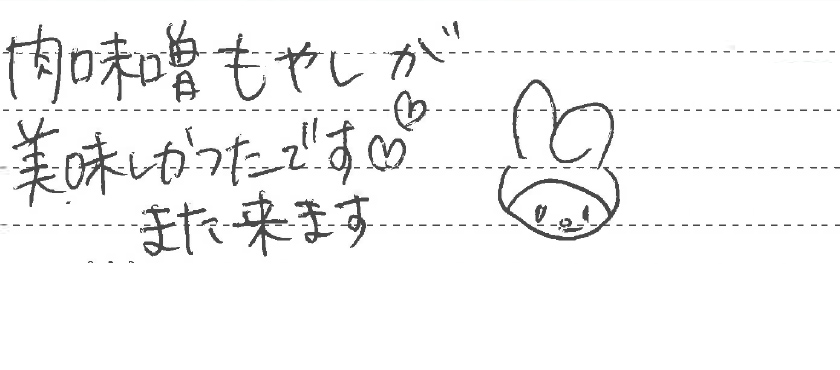 肉味噌もやしが
美味しかったです♡♡
また来ます